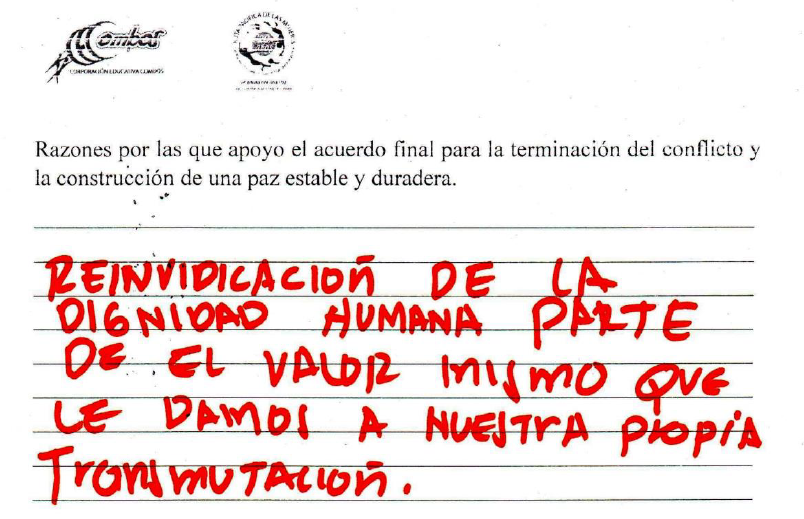 Combos
CORPORACIÓN EDUCATIVA COMBOS
Razones por las que apoyo el acuerdo final para la terminación del conflicto y
la construcción de una paz estable y duradera.
REINVIDICACIOÑ DE LA
DIGNIDAD HUMANA PARTE
DE EL VALOR MISMO QUE
LE DAMOS A NUESTRA PROPIA
TRANSMUTACIOÑ.